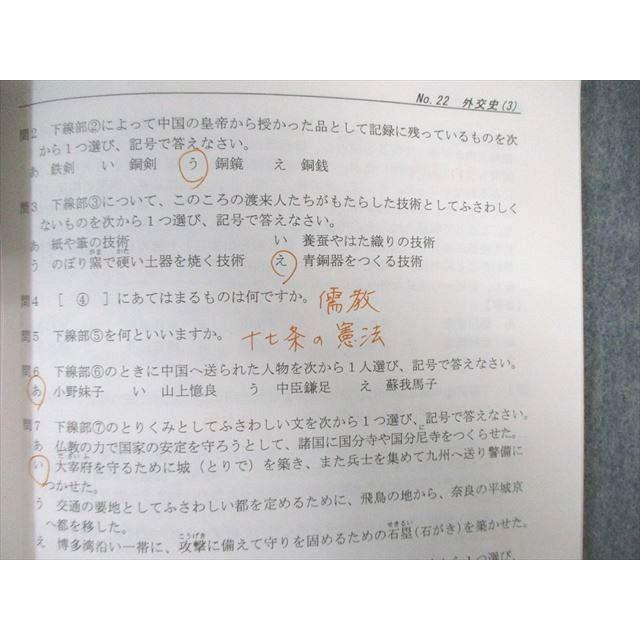 No.22 外交史(3)
問2 下線部②によって中国の皇帝から授かった品として記録に残っているものを次
から1つ選び、記号で答えなさい。
あ 鉄剣 い 銅剣 う 銅鏡 え 銅銭
問3 下線部③について、このころの渡来人たちがもたらした技術としてふさわしく
ないものを次から1つ選び、記号で答えなさい。
あ 紙や筆の技術 い 養蚕やはた織りの技術
う のぼり窯で硬い土器を焼く技術 え 青銅器をつくる技術
問4 [ ④ ]にあてはまるものは何ですか。 儒教
問5 下線部⑤を何といいますか。 十七条の憲法
問6 下線部⑥のときに中国へ送られた人物を次から1人選び、記号で答えなさい。
あ 小野妹子 い 山上憶良 う 中臣鎌足 え 蘇我馬子
問7 下線部⑦のとりくみとしてふさわしい文を次から1つ選び、記号で答えなさい。
あ 仏教の力で国家の安定を守ろうとして、諸国に国分寺や国分尼寺をつくらせた。
い 大宰府を守るために城(とりで)を築き、また兵士を集めて九州へ送り警備に
つかせた。
う 交通の要地としてふさわしい都を定めるために、飛鳥の地から、奈良の平城京
へ都を移した。
え 博多湾沿い一帯に、攻撃に備えて守りを固めるための石塁(石がき)を築かせた。